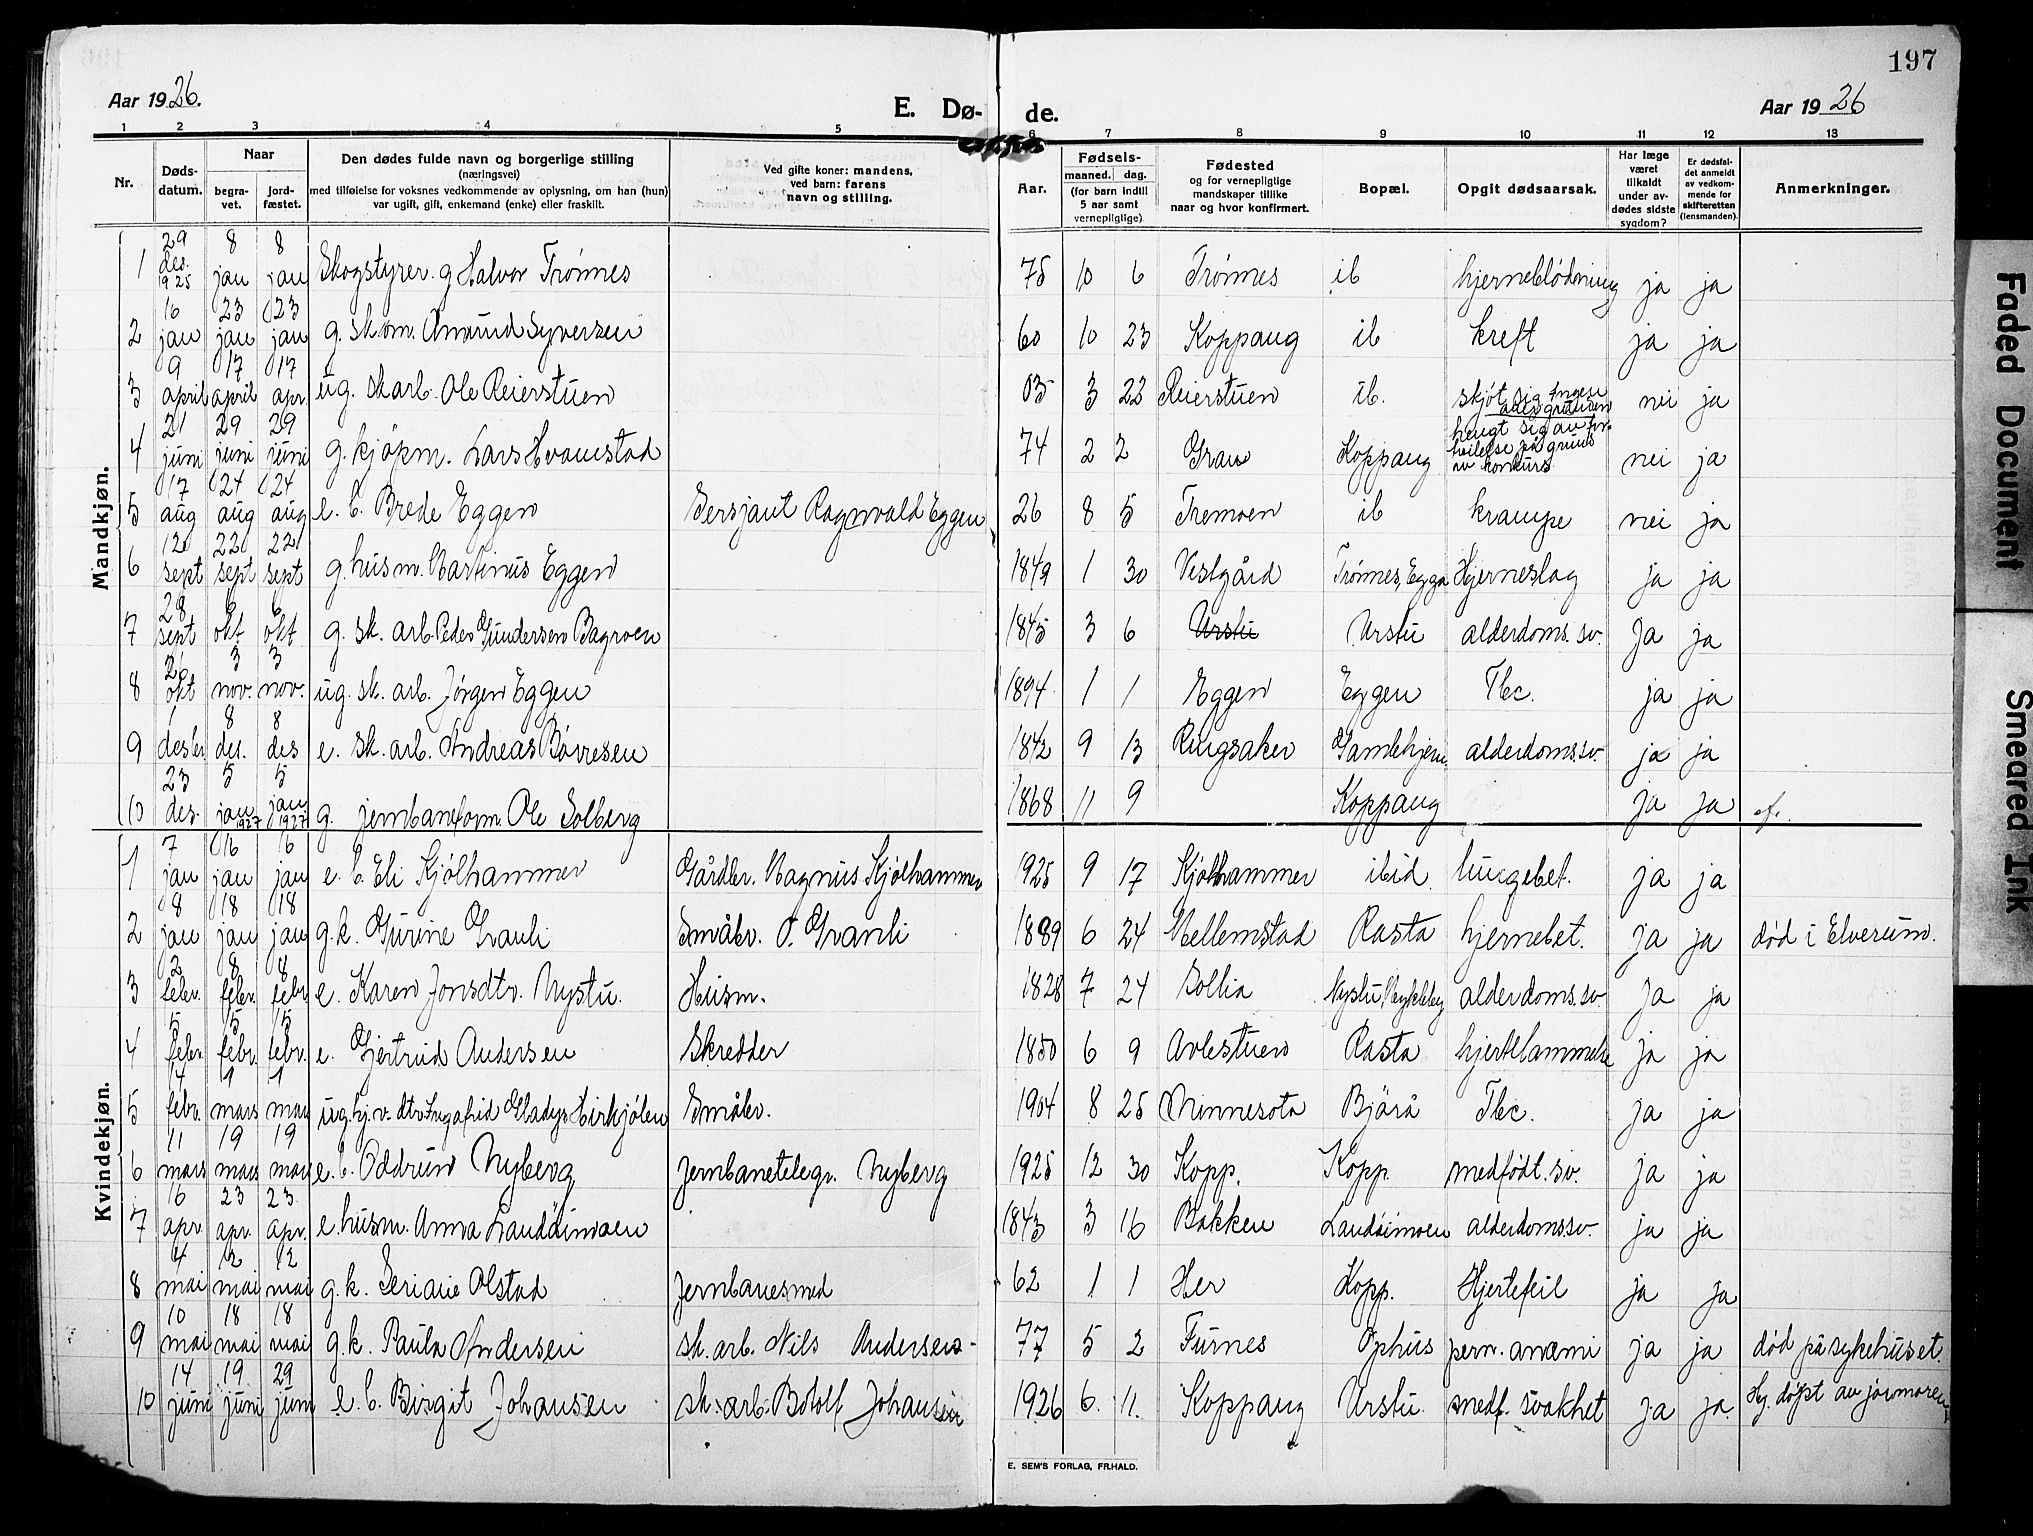 197
Aar 1926.
E. Dø- de.
Aar 1926
1 2 3 4 5 6 7 8 9 10 11 12 13
Nr.
Døds-datum.
Naar
begra-vet.
jord-fæstet.
Den dødes fulde navn og borgerlige stilling
(næringsvei)
med tilføielse for voksnes vedkommende av oplysning, om han (hun)
var ugift, gift, enkemand (enke) eller fraskilt.
Ved gifte koner: mandens,
ved barn: farens
navn og stilling.
Aar.
Fødsels-
maaned. dag.
(for barn indtil
5 aar samt
vernepligtige)
Fødested
og for vernepligtige
mandskaper tillike
naar og hvor konfirmert.
Bopæl.
Opgit dødsaarsak.
Har læge
været
tilkaldt
under av-
dødes sidste
sygdom?
Er dødsfal-
det anmeldt
av vedkom-
mende for
skifteretten
(lensmanden)
Anmerkninger.
Mandkjøn.
1 29 des. 1925 8 jan 8 jan Skogstyrer. g Halvor Trønnes 75 10 6 Trønnes ib hjerneblødning ja ja
2 16 jan 23 jan 23 jan g. sk.om. Amund Syversen 60 10 23 Koppang ib kreft ja ja
3 9 april 17 april 17 apr. ug. sk.arb. Ole Reierstuen 03 3 22 Reierstuen ib. skjøt sig nei ja
4 21 juni 29 juni 29 juni g. kjøpm. Lars Hvamstad 74 2 2 Gran Koppang hengt sig av for-tvilelse på grund av konkurs nei ja
5 17 aug 24 aug 24 aug e. b. Brede Eggen Sersjant Ragnvald Eggen 26 8 5 Tremoen ib krampe nei ja
6 12 sept 22 sept 22 sept g. husm. Martinus Eggen 1849 1 30 Vestgård Trønnes, Egga Hjerneslag ja ja
7 28 sept 6 okt 6 okt g. sk. arb. Peder Gundersen Bagroen 1845 3 6 Urstu Urstu alderdoms.sv. Ja ja
8 26 okt 3 nov. 3 nov. ug. sk. arb. Jørgen Eggen 1894 1 1 Eggen Eggen Tbc. ja ja
9 1 des'br. 8 des. 8 des e. sk. arb. Andreas Børresen 1842 9 13 Ringsaker Gamlehjem. alderdoms.sv. ja ja
10 23 des. 5 jan 1927 5 jan 1927 g. jernbaneform. Ole Solberg 1868 11 9 Koppang ja ja
Kvindekjøn.
1 7 jan 16 jan 16 jan e. b. Eli Kjølhammer Gårdbr. Magnus Kjølhammer 1925 9 17 Kjølhammer ibid lungebet. ja ja
2 8 jan 18 jan 18 jan g.k. Gurine Granli Småbr. O. Granli 1889 6 24 Mellemstad Rasta hjernebet. ja ja død i Elverum.
3 2 febr. 8 febr. 8 febr e. Karen Jonsdtr. Nystu. Husm. 1828 7 24 Sollia Nystu, alderdoms.sv. ja ja
4 5 febr. 15 febr. 15 febr. e. Gjertrud Andersen Skredder 1850 6 9 Avlestuen Rasta hjertelammelse ja ja
5 14 febr. 1 mars 1 mars ug. hj.v. dtr Ingafrid Gladys Hirkjølen Småbr. 1904 8 25 Minnesota Bjørå Tbc. ja ja
6 11 mars 19 mars 19 mars e. b. Oddrun Nyberg Jernbanetelegr. Nyberg 1925 12 30 Kopp. Kopp. medfødt. sv. ja ja
7 16 apr 23 apr. 23 apr. e. husm. Anna Landåimoen 1843 3 16 Bakken Landåimoen alderdomssv. ja ja
8 4 mai 12 mai 12 mai g.k. Seriane Olstad Jernbanesmed 62 1 1 Her Kopp. Hjertefeil ja ja
9 10 mai 18 mai 18 mai g.k. Paula Andersen sk. arb. Nils Andersen - 77 5 2 Furnes Ophus pern. anæmi ja ja død på sykehuset.
10 14 juni 19 juni 29 juni e. b. Birgit Johansen sk. arb. Botolf Johansen 1926 6. 11. Koppang Urstu. medf. svakhet ja ja Hj. døpt av jormoren
E. SEM'S FORLAG, FR.HALD.
Faded Document
Smeared Ink